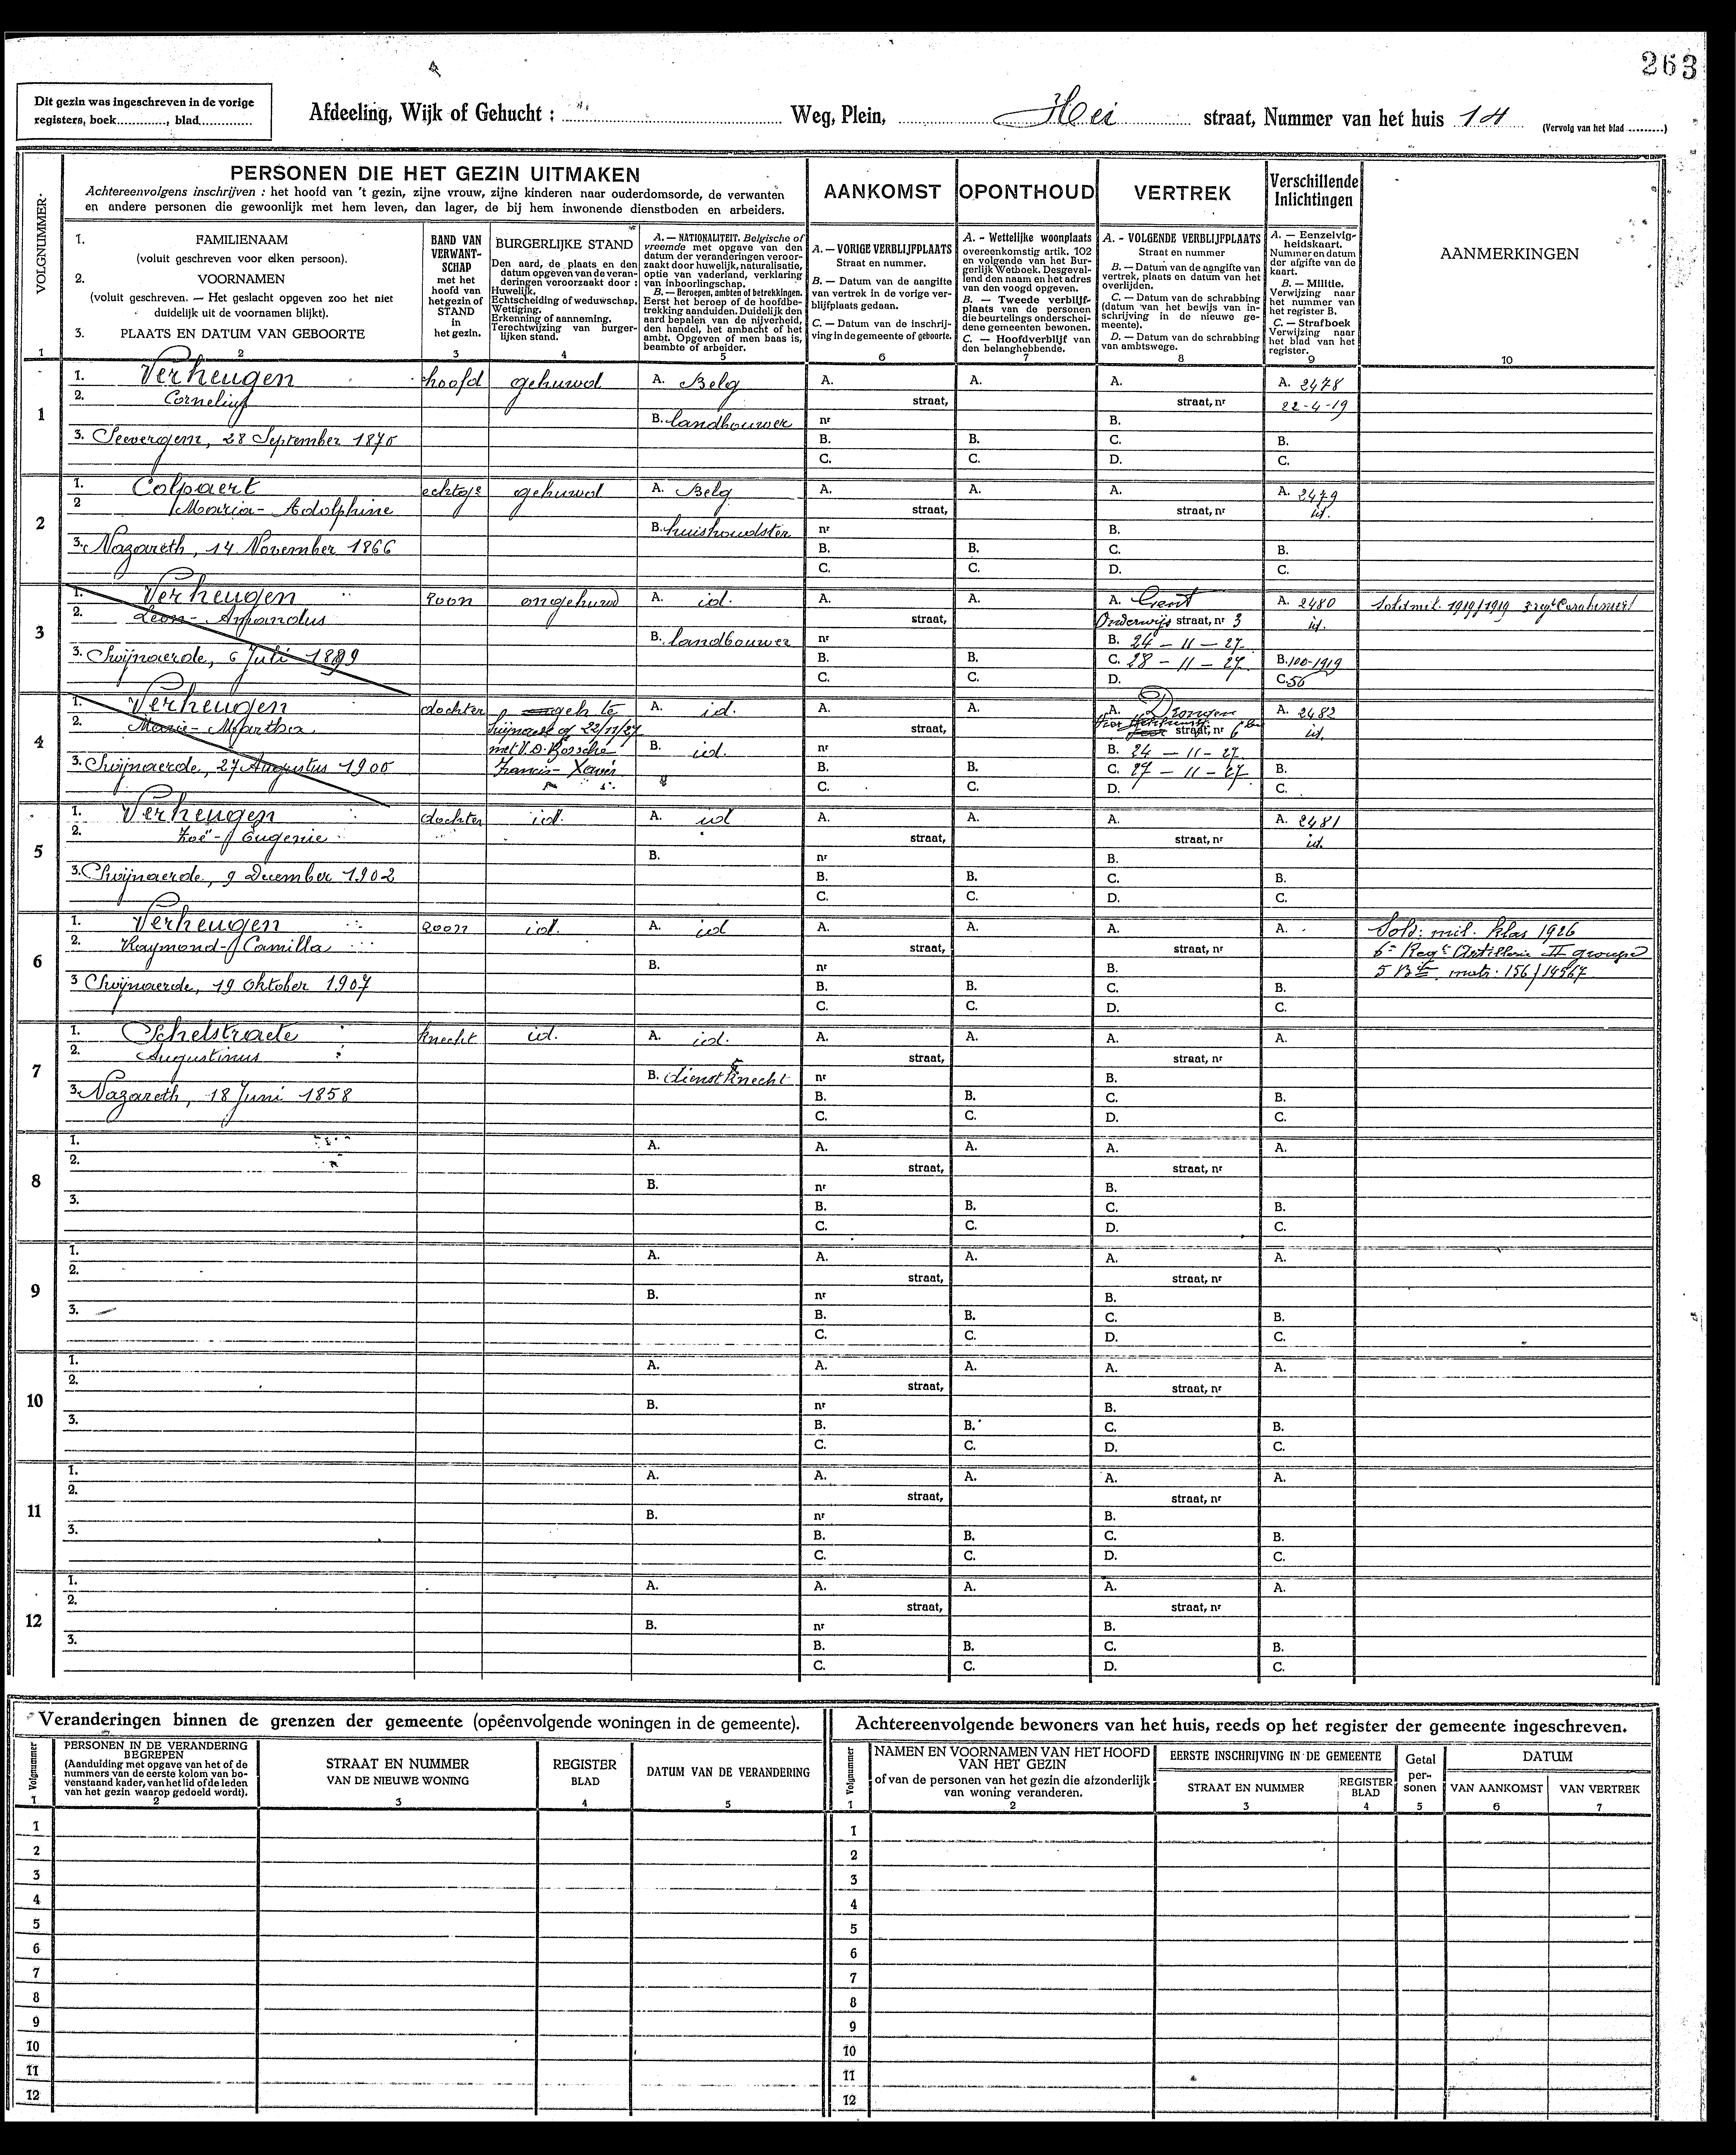 263
Dit gezin was ingeschreven in de vorige
registers, boek............, blad..............
Afdeeling, Wijk of Gehucht : ........ Weg, Plein, ........ Hei ........ straat, Nummer van het huis 14 (Vervolg van het blad .........)
VOLGNUMMER.
PERSONEN DIE HET GEZIN UITMAKEN
Achtereenvolgens inschrijven : het hoofd van 't gezin, zijne vrouw, zijne kinderen naar ouderdomsorde, de verwanten
en andere personen die gewoonlijk met hem leven, dan lager, de bij hem inwonende dienstboden en arbeiders.
AANKOMST
OPONTHOUD
VERTREK
Verschillende
Inlichtingen
AANMERKINGEN
1. FAMILIENAAM
(voluit geschreven voor elken persoon).
2. VOORNAMEN
(voluit geschreven. — Het geslacht opgeven zoo het niet
duidelijk uit de voornamen blijkt).
3. PLAATS EN DATUM VAN GEBOORTE
BAND VAN
VERWANT-
SCHAP
met het
hoofd van
het gezin of
STAND
in
het gezin.
BURGERLIJKE STAND
Den aard, de plaats en den
datum opgeven van de veran-
deringen veroorzaakt door :
Huwelijk.
Echtscheiding of weduwschap.
Wettiging.
Erkenning of aanneming.
Terechtwijzing van burger-
lijken stand.
A. — NATIONALITEIT. Belgische of
vreemde met opgave van den
datum der veranderingen veroor-
zaakt door huwelijk, naturalisatie,
optie van vaderland, verklaring
van inboorlingschap.
B. — Beroepen, ambten of betrekkingen.
Eerst het beroep of de hoofdbe-
trekking aanduiden. Duidelijk den
aard bepalen van de nijverheid,
den handel, het ambacht of het
ambt. Opgeven of men baas is,
beambte of arbeider.
A. — VORIGE VERBLIJFPLAATS
Straat en nummer.
B. — Datum van de aangifte
van vertrek in de vorige ver-
blijfplaats gedaan.
C. — Datum van de inschrij-
ving in de gemeente of geboorte.
A. - Wettelijke woonplaats
overeenkomstig artik. 102
en volgende van het Bur-
gerlijk Wetboek. Desgeval-
lend den naam en het adres
van den voogd opgeven.
B. — Tweede verblijf-
plaats van de personen
die beurtelings onderschei-
dene gemeenten bewonen.
C. — Hoofdverblijf van
den belanghebbende.
A. - VOLGENDE VERBLIJFPLAATS
Straat en nummer
B. — Datum van de aangifte van
vertrek, plaats en datum van het
overlijden.
C. — Datum van de schrabbing
(datum van het bewijs van in-
schrijving in de nieuwe ge-
meente).
D. — Datum van de schrabbing
van ambtswege.
A. — Eenzelvig-
heidskaart.
Nummer en datum
der afgifte van de
kaart.
B. — Militie.
Verwijzing naar
het nummer van
het register B.
C. — Strafboek
Verwijzing naar
het blad van het
register.
1 2 3 4 5 6 7 8 9 10
1
1. Verheugen hoofd gehuwd A. Belg A. A. A. A. 2478
2. Cornelius straat, straat, nr 22-4-19
B. landbouwer nr B.
3. Seevergem, 28 September 1870 B. B. C. B.
C. C. D. C.
2
1. Colpaert echtge gehuwd A. Belg A. A. A. A. 2479
2 Maria-Adolphine straat, straat, nr id.
B. huishoudster nr B.
3. Nazareth, 14 November 1866 B. B. C. B.
C. C. D. C.
3
1. Verheugen zoon ongehuwd A. id. A. A. A. Gent A. 2480
2. Leon-Amandus straat, Onderwijs straat, nr 3 id.
B. landbouwer nr B. 24 - 11 - 27
3. Swijnaerde, 6 Juli 1899 B. B. C. 28 - 11 - 27. B. 100-1919
C. C. D. C. 56
4
1. Verheugen dochter A. id. A. A. A. Drongen A. 2482
2. Marie-Martha 22/11/27 straat, straat, nr 6 id.
met V.D. Bossche B. id. nr B. 24 - 11 - 27.
3. Swijnaerde, 27 Augustus 1900 Francis-Xavier B. B. C. 27 - 11 - 27 B.
C. C. D. C.
5
1. Verheugen dochter id. A. id A. A. A. A. 2481
2. Zoë-Eugenie straat, straat, nr id.
B. nr B.
3. Swijnaerde, 9 December 1902 B. B. C. B.
C. C. D. C.
6
1. Verheugen zoon id. A. id A. A. A. A. Sold: mil. klas 1926
2. Raymond-Camilla straat, straat, nr 6e Regt Artillerie II groupe
B. nr B. 5 Bie matr. 156/14567
3 Swijnaerde, 19 Oktober 1907 B. B. C. B.
C. C. D. C.
7
1. Schelstraete knecht id. A. id. A. A. A. A.
2. Augustinus straat, straat, nr
B. dienstknecht nr B.
3. Nazareth, 18 Juni 1858 B. B. C. B.
C. C. D. C.
8
1. A. A. A. A. A.
2. straat, straat, nr
B. nr B.
3. B. B. C. B.
C. C. D. C.
9
1. A. A. A. A. A.
2. straat, straat, nr
B. nr B.
3. B. B. C. B.
C. C. D. C.
10
1. A. A. A. A. A.
2. straat, straat, nr
B. nr B.
3. B. B. C. B.
C. C. D. C.
11
1. A. A. A. A. A.
2. straat, straat, nr
B. nr B.
3. B. B. C. B.
C. C. D. C.
12
1. A. A. A. A. A.
2. straat, straat, nr
B. nr B.
3. B. B. C. B.
C. C. D. C.
Veranderingen binnen de grenzen der gemeente (opéenvolgende woningen in de gemeente).
Volgnummer
PERSONEN IN DE VERANDERING
BEGREPEN
(Aanduiding met opgave van het of de
nummers van de eerste kolom van bo-
venstaand kader, van het lid of de leden
van het gezin waarop gedoeld wordt).
STRAAT EN NUMMER
VAN DE NIEUWE WONING
REGISTER
BLAD
DATUM VAN DE VERANDERING
1 2 3 4 5
1
2
3
4
5
6
7
8
9
10
11
12
Achtereenvolgende bewoners van het huis, reeds op het register der gemeente ingeschreven.
Volgnummer
NAMEN EN VOORNAMEN VAN HET HOOFD
VAN HET GEZIN
of van de personen van het gezin die afzonderlijk
van woning veranderen.
EERSTE INSCHRIJVING IN DE GEMEENTE
STRAAT EN NUMMER
REGISTER
BLAD
Getal
per-
sonen
DATUM
VAN AANKOMST
VAN VERTREK
1 2 3 4 5 6 7
1
2
3
4
5
6
7
8
9
10
11
12